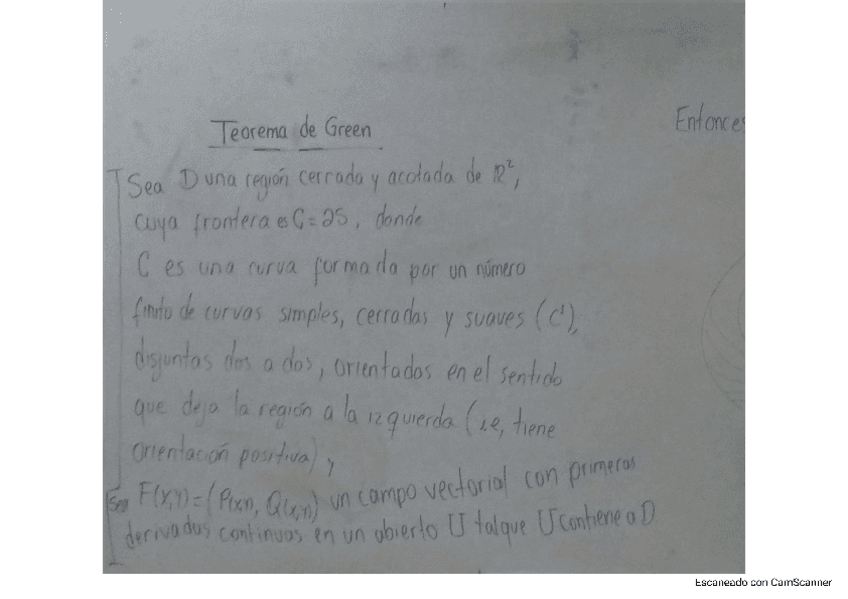 Teorema de Green
Entonces
Sea D una región cerrada y acotada de R²,
cuya frontera es C = ∂S, donde
C es una curva formada por un número
finito de curvas simples, cerradas y suaves (C¹),
disjuntas dos a dos, orientadas en el sentido
que deja la región a la izquierda (i.e, tiene
orientación positiva) y
Sea F(x,y) = (P(x,y), Q(x,y)) un campo vectorial con primeras
derivadas continuas en un abierto U tal que U contiene a D
Escaneado con CamScanner